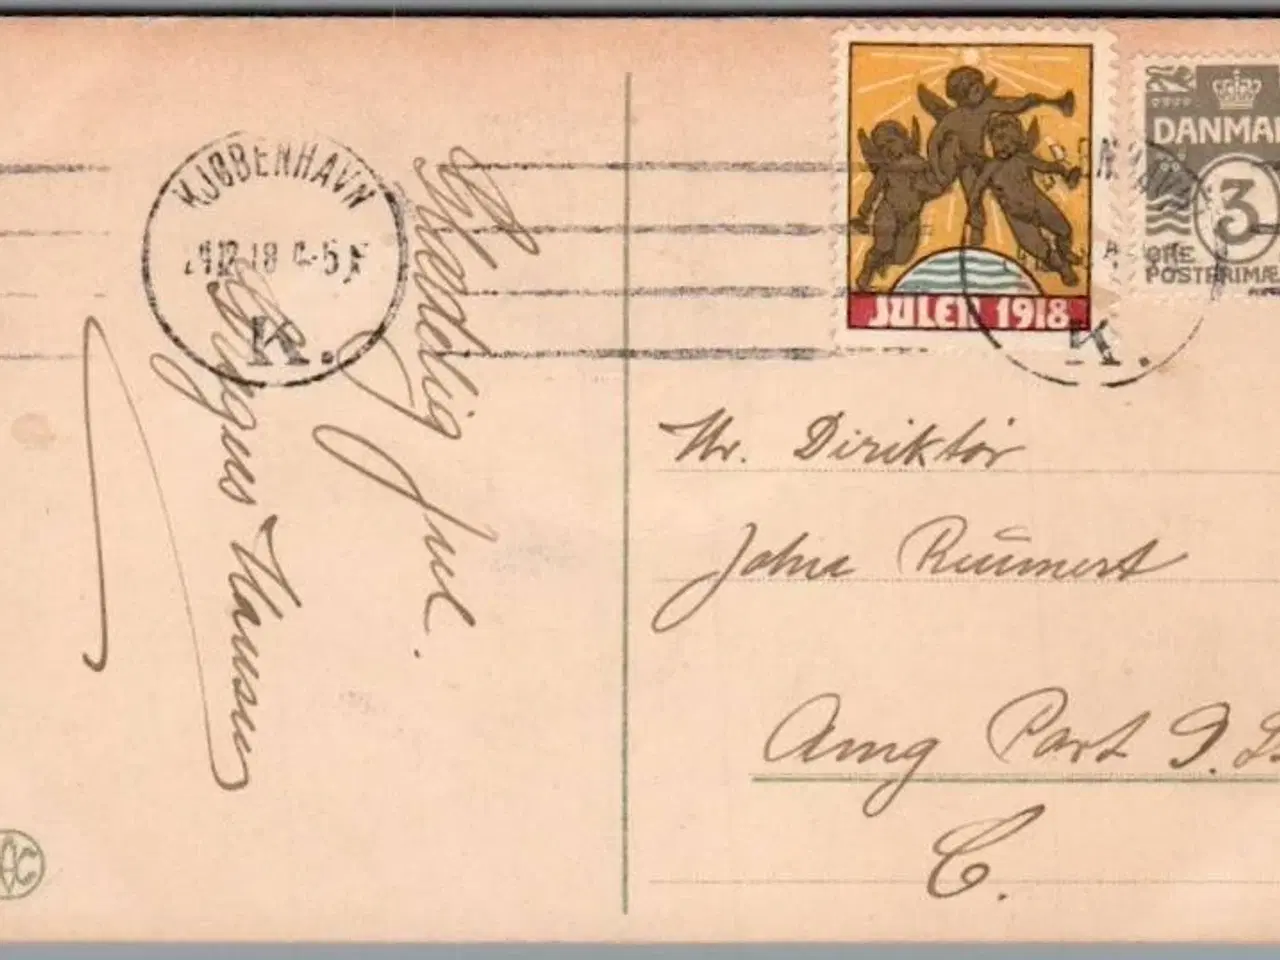 KJØBENHAVN
K.
Glædelig Jul.
Hansen
JULEN 1918
DANMA
3
ØRE
POSTFRIMÆ
K.
Hr. Diriktør
Johns Rümert
Amg Part 9.
C.